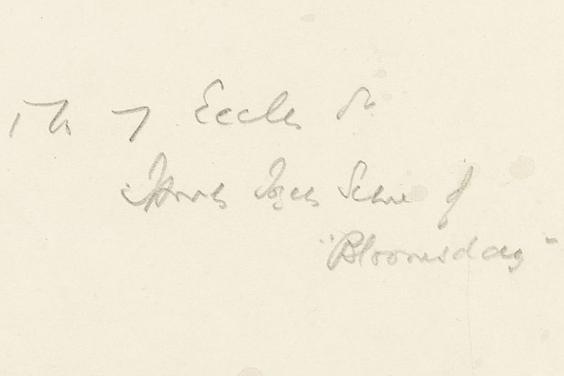 7 Eccles St
James Joyces Scene of
"Bloomsday"